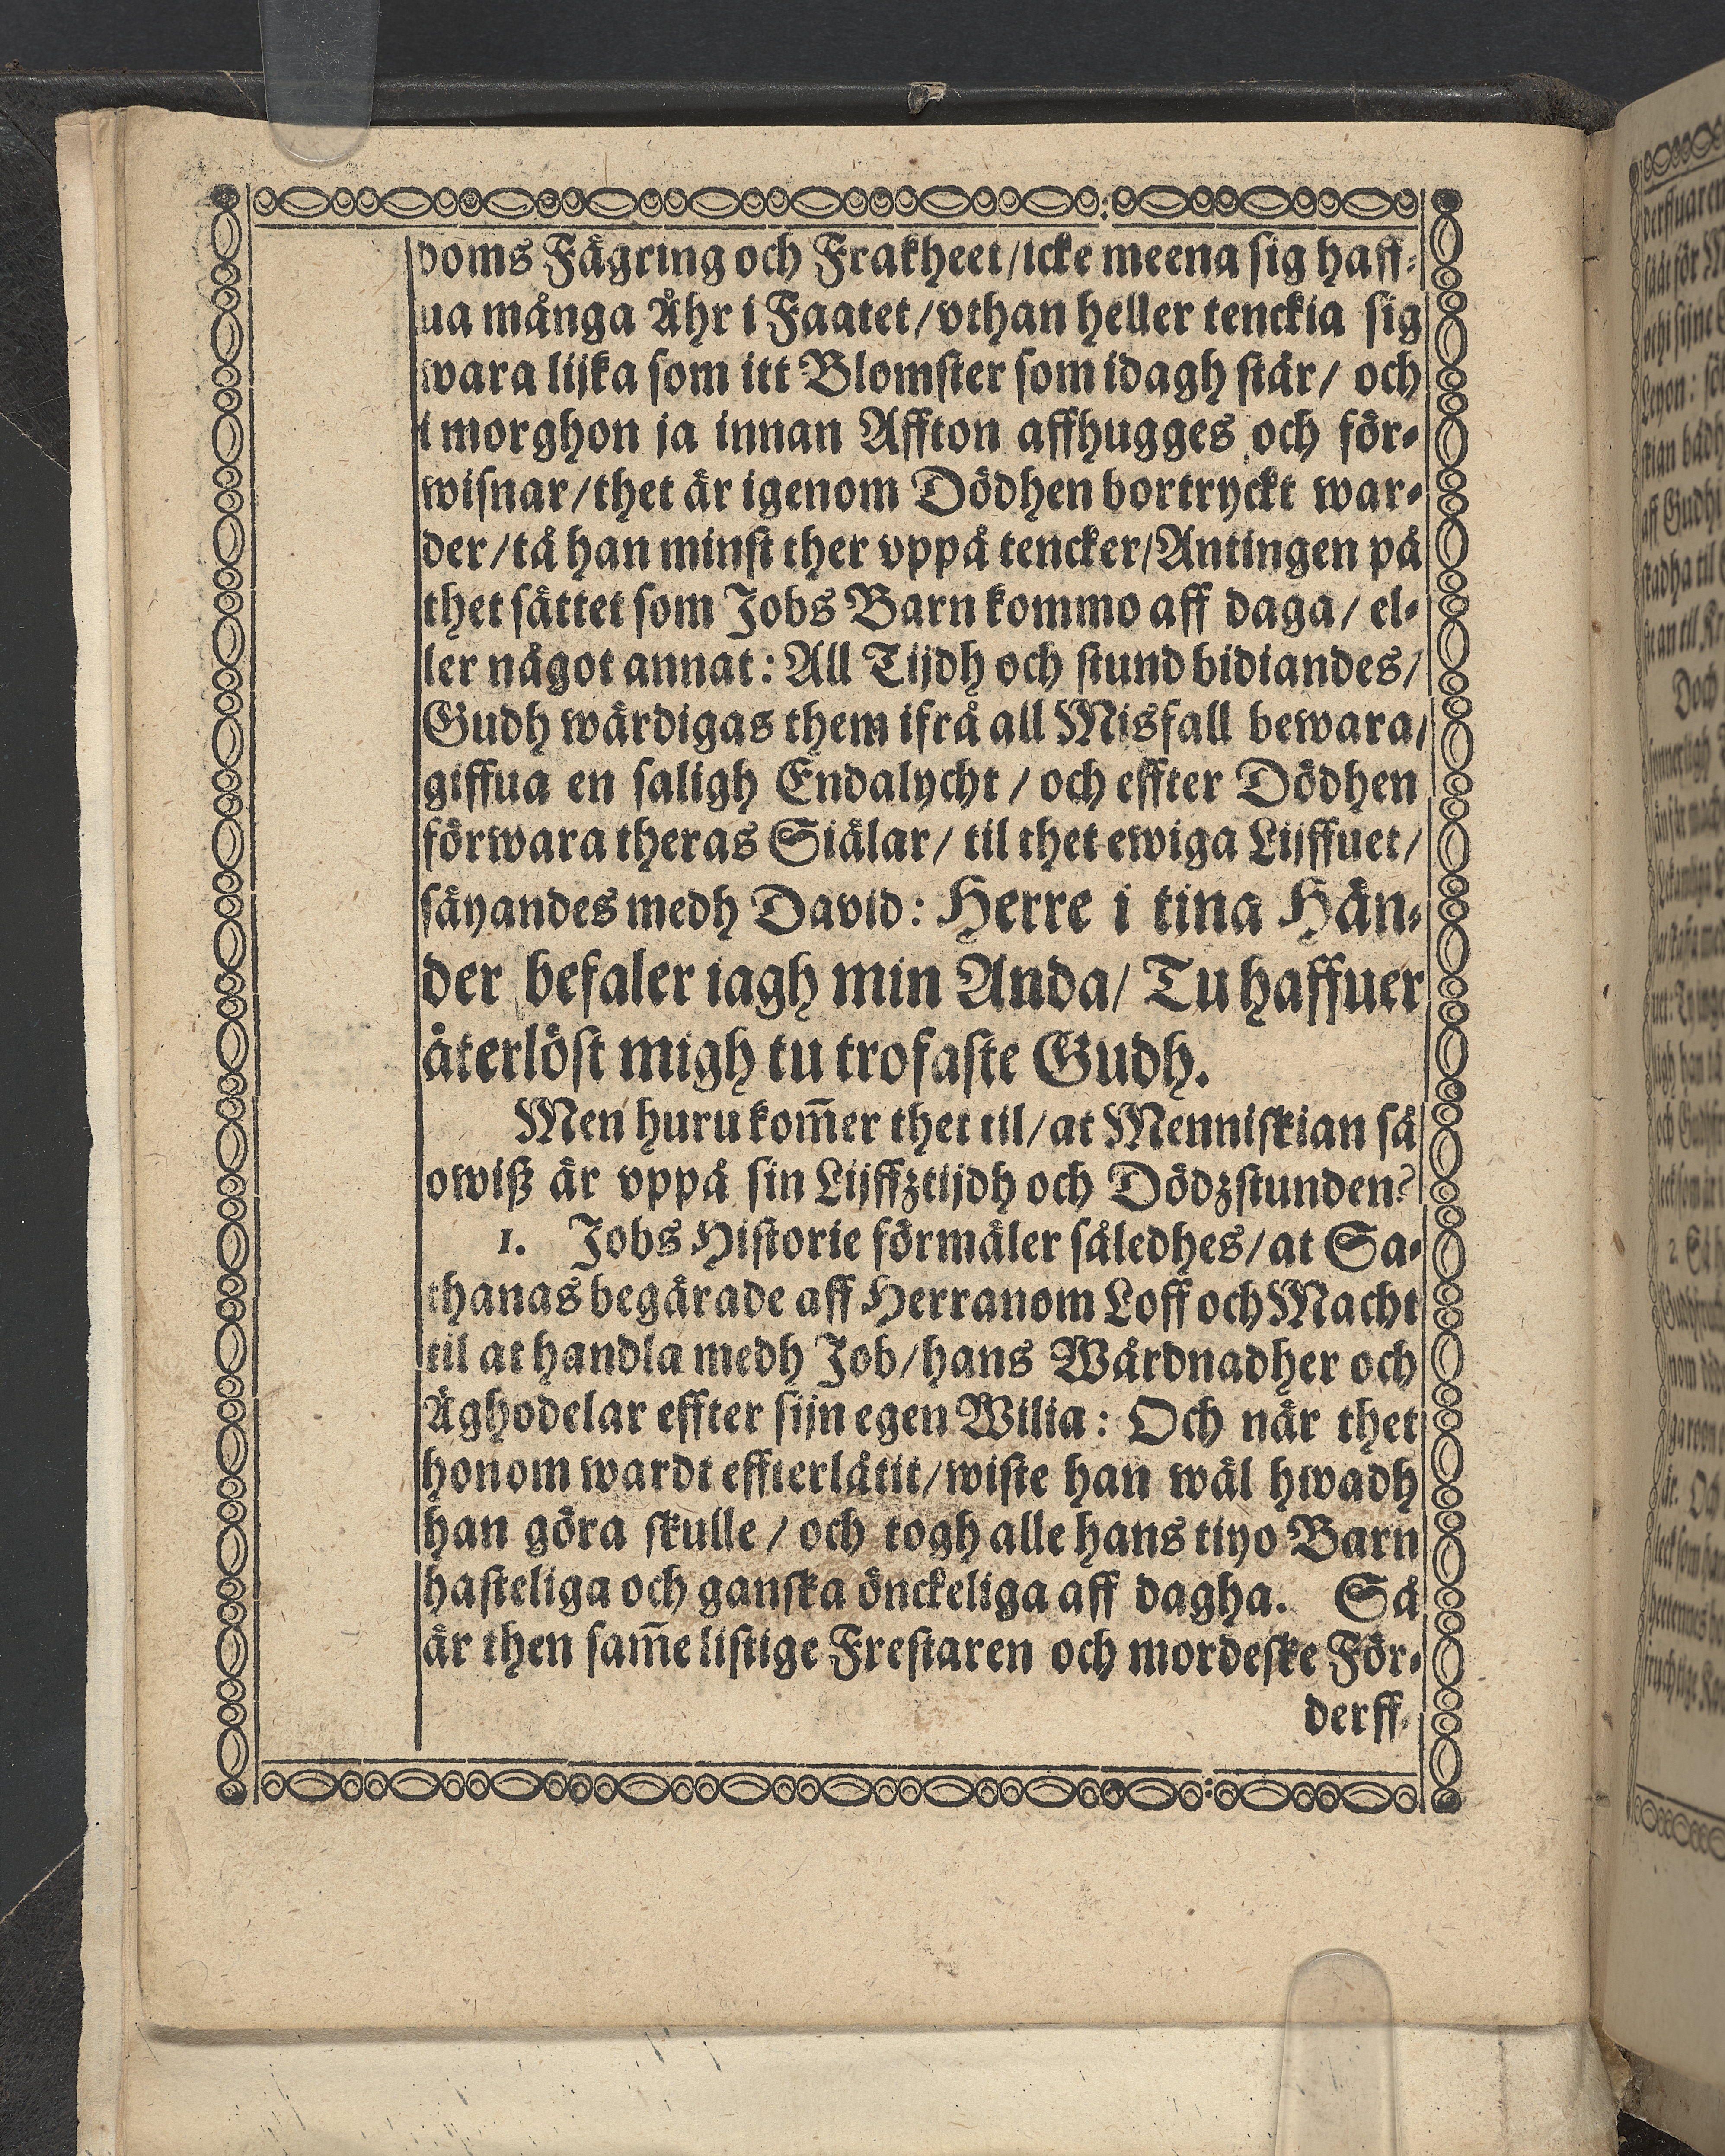 doms Fägring och Frakheet/icke meena sig haff-
ua många Åhr i Faatet/vthan heller tenckia sig
wara lijka som itt Blomster som idagh står/ och
i morghon ja innan Affton affhugges och för-
wisnar/thet är igenom Dödhen bortryckt war-
der/tå han minst ther vppå tencker/Antingen på
thet sättet som Jobs Barn kommo aff daga/ el-
ler något annat: All Tijdh och stund bidiandes/
Gudh wärdigas them ifrå all Misfall bewara/
giffua en saligh Endalycht / och effter Dödhen
förwara theras Siälar/ til thet ewiga Lijffuet/
säyandes medh David: Herre i tina Hän-
der befaler iagh min Anda/ Tu haffuer
återlöst migh tu trofaste Gudh.
Men huru kom̃er thet til/at Menniskian så
owiß är vppå sin Lijffztijdh och Dödzstunden?
1. Jobs Historie förmäler således/at Sa-
thanas begärade aff Herranom Loff och Macht
til at handla medh Job/hans Wårdnadher och
Äghodelar effter sijn egen Wilia: Och när thet
honom wardt effterlåtit/wiste han wäl hwadh
han göra skulle / och togh alle hans tiyo Barn
hasteliga och ganska önckeliga aff dagha. Så
är then sam̃e listige Frestaren och mordeske För-
derff-